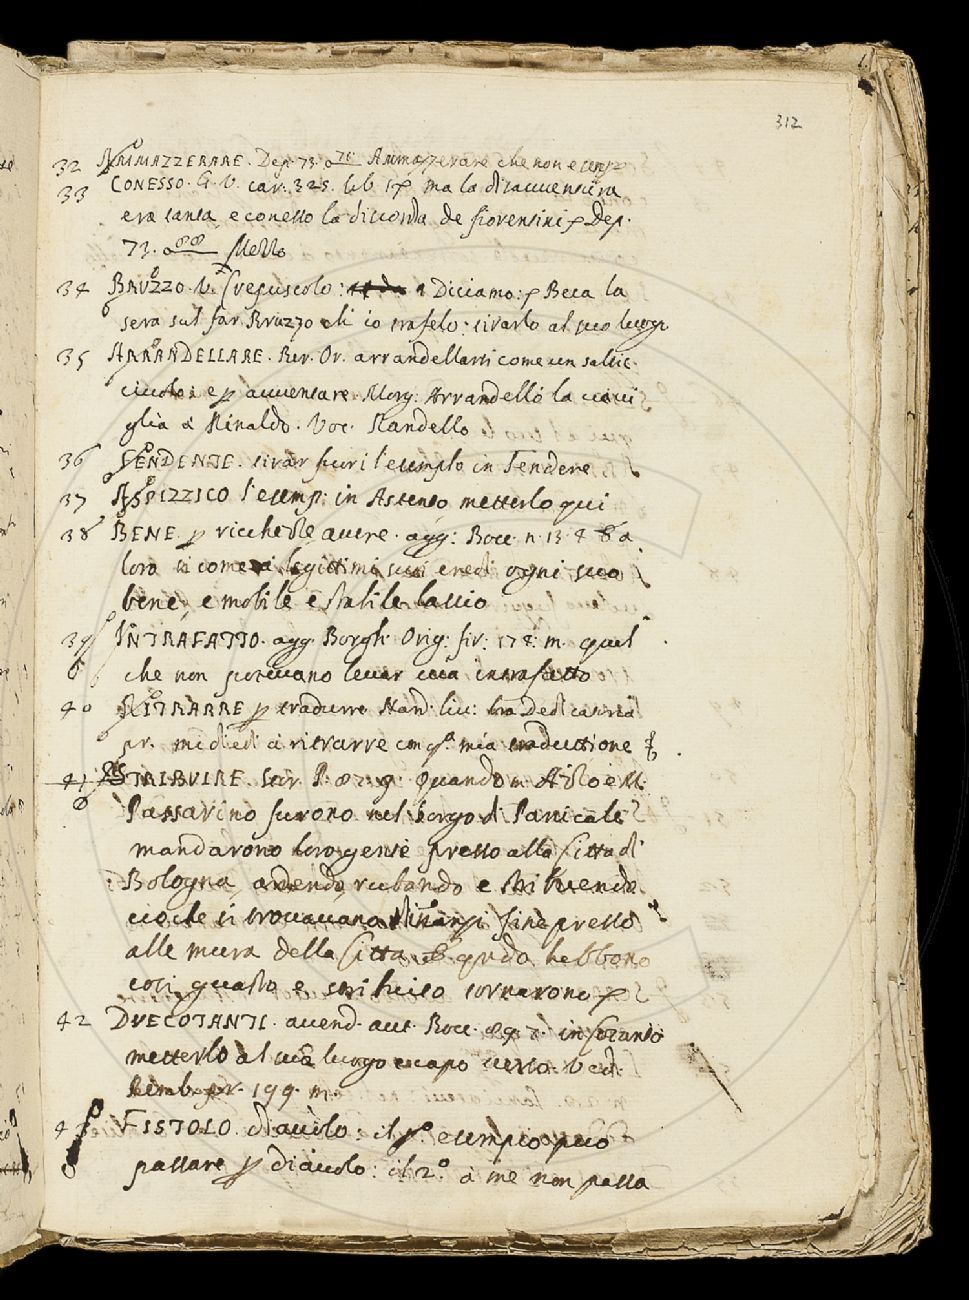 312
32 AMMAZZERARE. Dep. 73. Ammazzerare che non è
33 CONESSO. G. V. car. 325. lib. ma la disavventura
era tanta e conesso la discordia de fiorentini Dep.
73. Messo
34 BRUZZO. V. Crepuscolo: Diciamo: Beca la
sera sul far Bruzzo di io trafelo: tirarlo al suo luogo
35 ARRANDELLARE. Bur. Or. arrandellarti come un salsic
ciuolo: e p avventare. Morg: Arrandellò la
glia à Rinaldo. Voc. Randello
36 TENDENTE. tirar furi l'esemplo in Tendere
37 ASPIZZICO l'esemp: in metterlo qui
38 BENE p ricchezze avere. agg: Bocc. n. 13. a
loro si come à legittimi suoi eredi ogni suo
bene, e mobile e stabile lascio
39 INTRAFATTO. agg. Borgh. Orig. fir: 178. m. quel
che non potevano levar via intrafatto
40 RITRARRE p tradurre Nard. liv:
pr. mi diedi à ritrarre con qta. mia traduttione
41 STRIBUIRE. Stor P. 87. 9. quando m. e M.
Passarino furono nel borgo di Panicale
mandarono loro gente presso alla Citta di
Bologna ardendo rubando e stribuendo
cioche si trovavano dinanzi fine presso
alle mura della Citta. E qndo hebbono
cosi guasto e stribuito tornarono
42 DUECOTANTI. avend. aut. Bocc. 89. 7. in
metterlo al suo luogo e capo verso. Vedi
Bemb. pr. 199. m.
43 FISTOLO. diavolo: il po. esempio può
passare p diavolo: il 2.o à me non passa